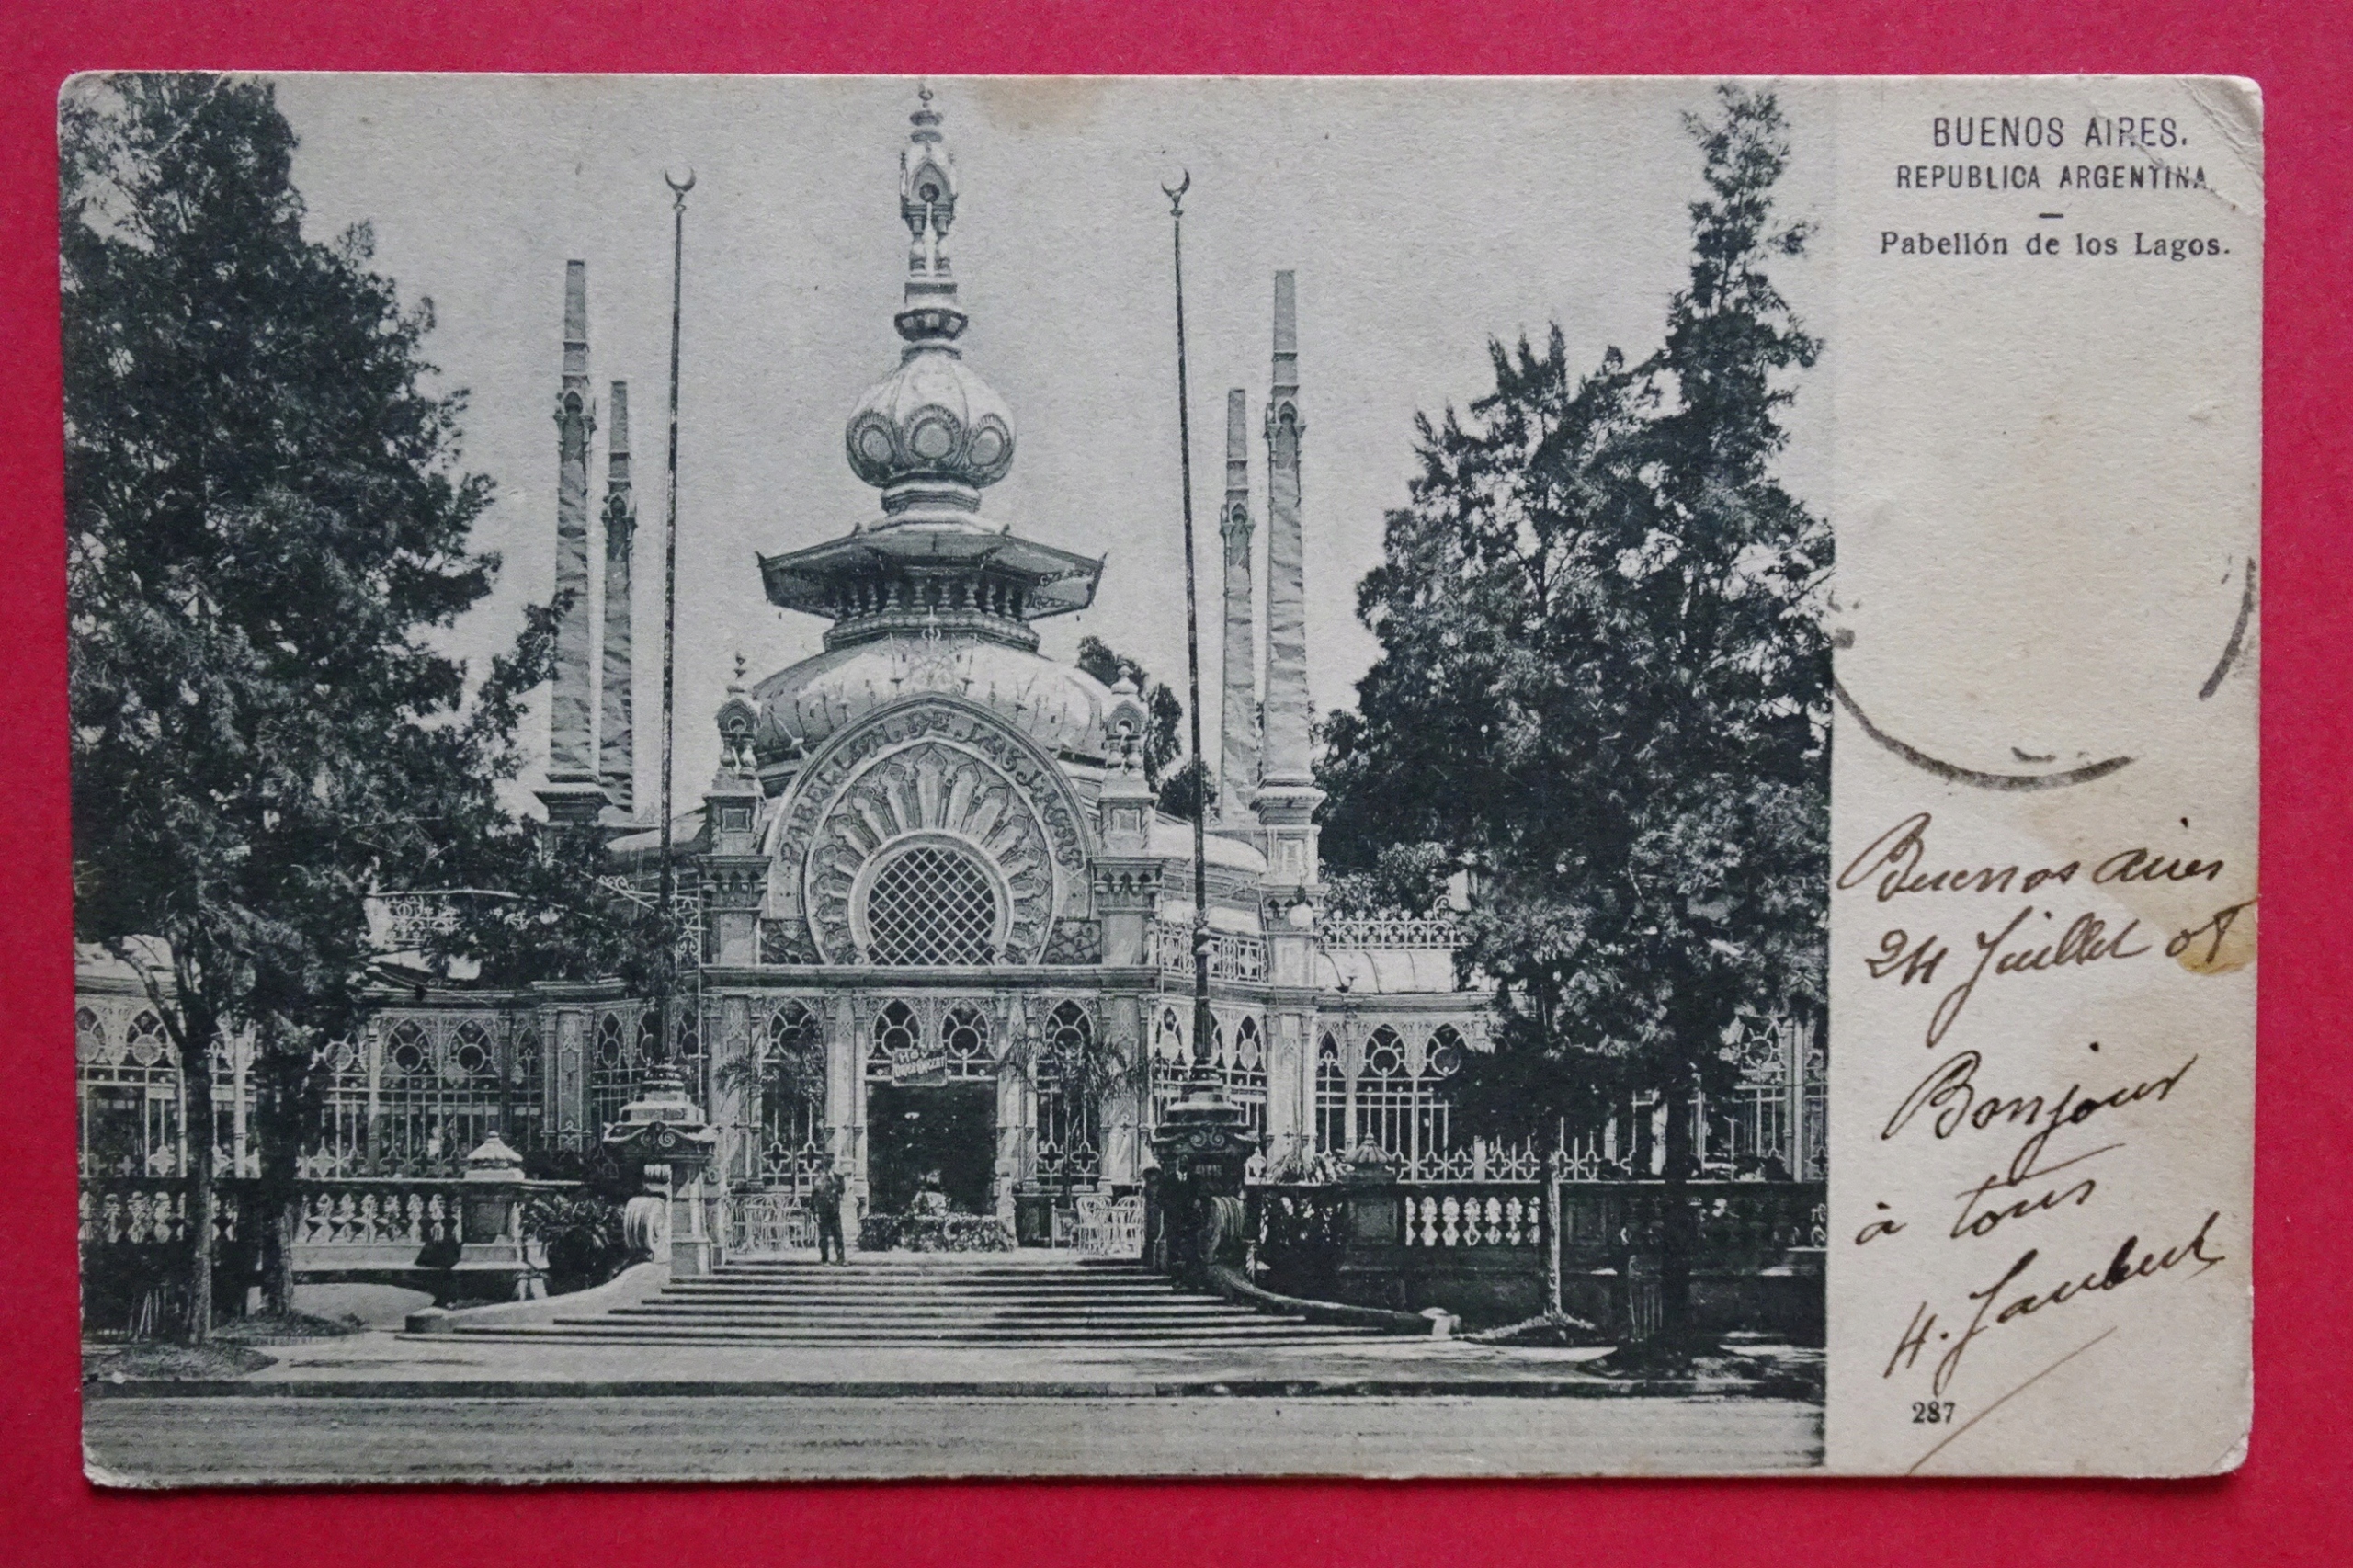 BUENOS AIRES.
REPUBLICA ARGENTINA.
Pabellón de los Lagos.
PABELLON. DE. LOS. LAGOS
HOY
Buenos aires
24 Juillet 08
Bonjour
à tous
H. Jaubert
287